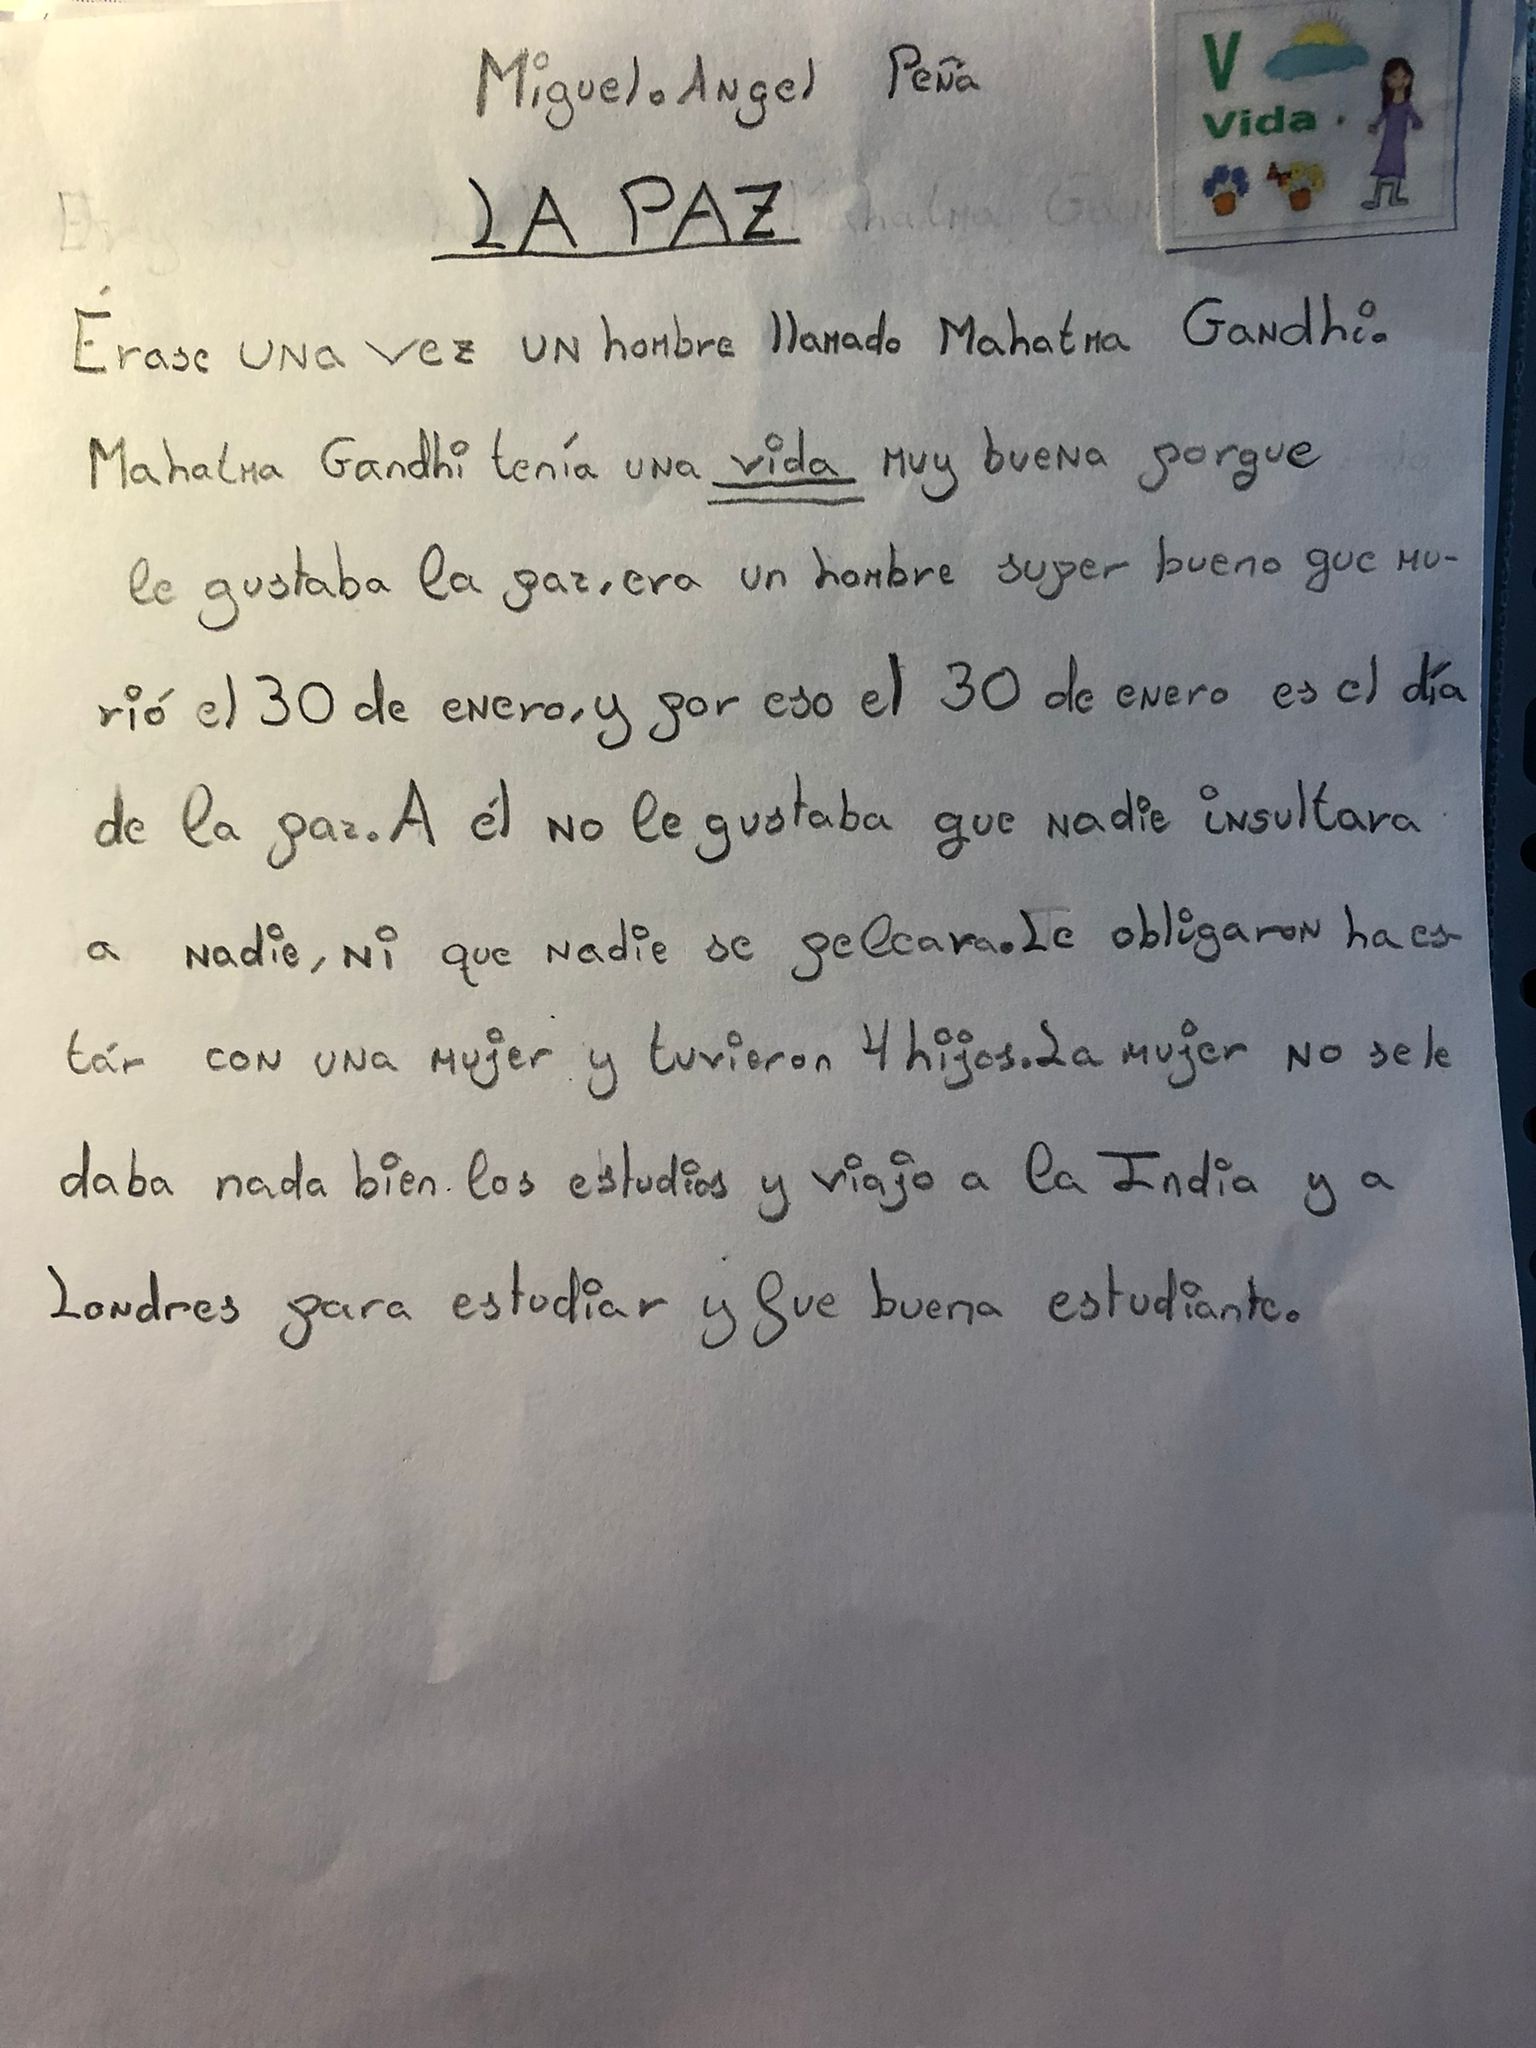 Miguel.Angel Peña
V
Vida
LA PAZ
Érase una vez un hombre llamado Mahatma Gandhi.
Mahatma Gandhi tenía una vida muy buena porque
le gustaba la paz, era un hombre super bueno que mu-
rió el 30 de enero, y por eso el 30 de enero es el día
de la paz. A él no le gustaba que nadie insultara
a nadie, ni que nadie se peleara. Le obligaron ha es-
tár con una mujer y tuvieron 4 hijos. La mujer no se le
daba nada bien los estudios y viajo a la India y a
Londres para estudiar y fue buena estudiante.